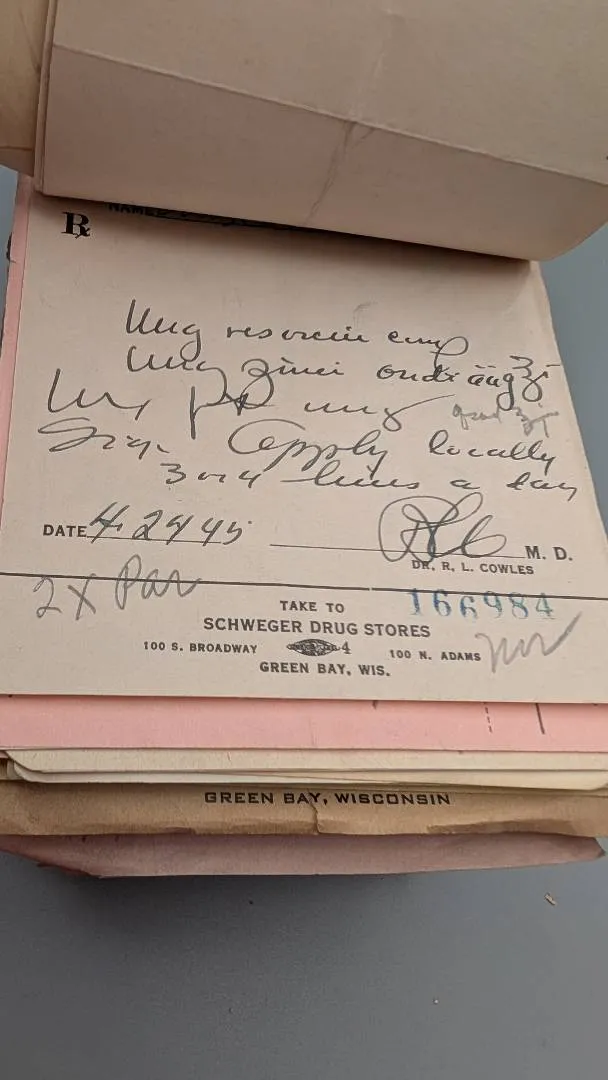 ℞ NAME
Ung resorcin comp
Ung zinci oxidi āā ʒ
M ft ung
Sig. Apply locally
3 or 4 times a day
DATE 4 24 45 M. D.
DR. R. L. COWLES
2 X Par
TAKE TO 166984
SCHWEGER DRUG STORES
100 S. BROADWAY 4 100 N. ADAMS
GREEN BAY, WIS.
GREEN BAY, WISCONSIN